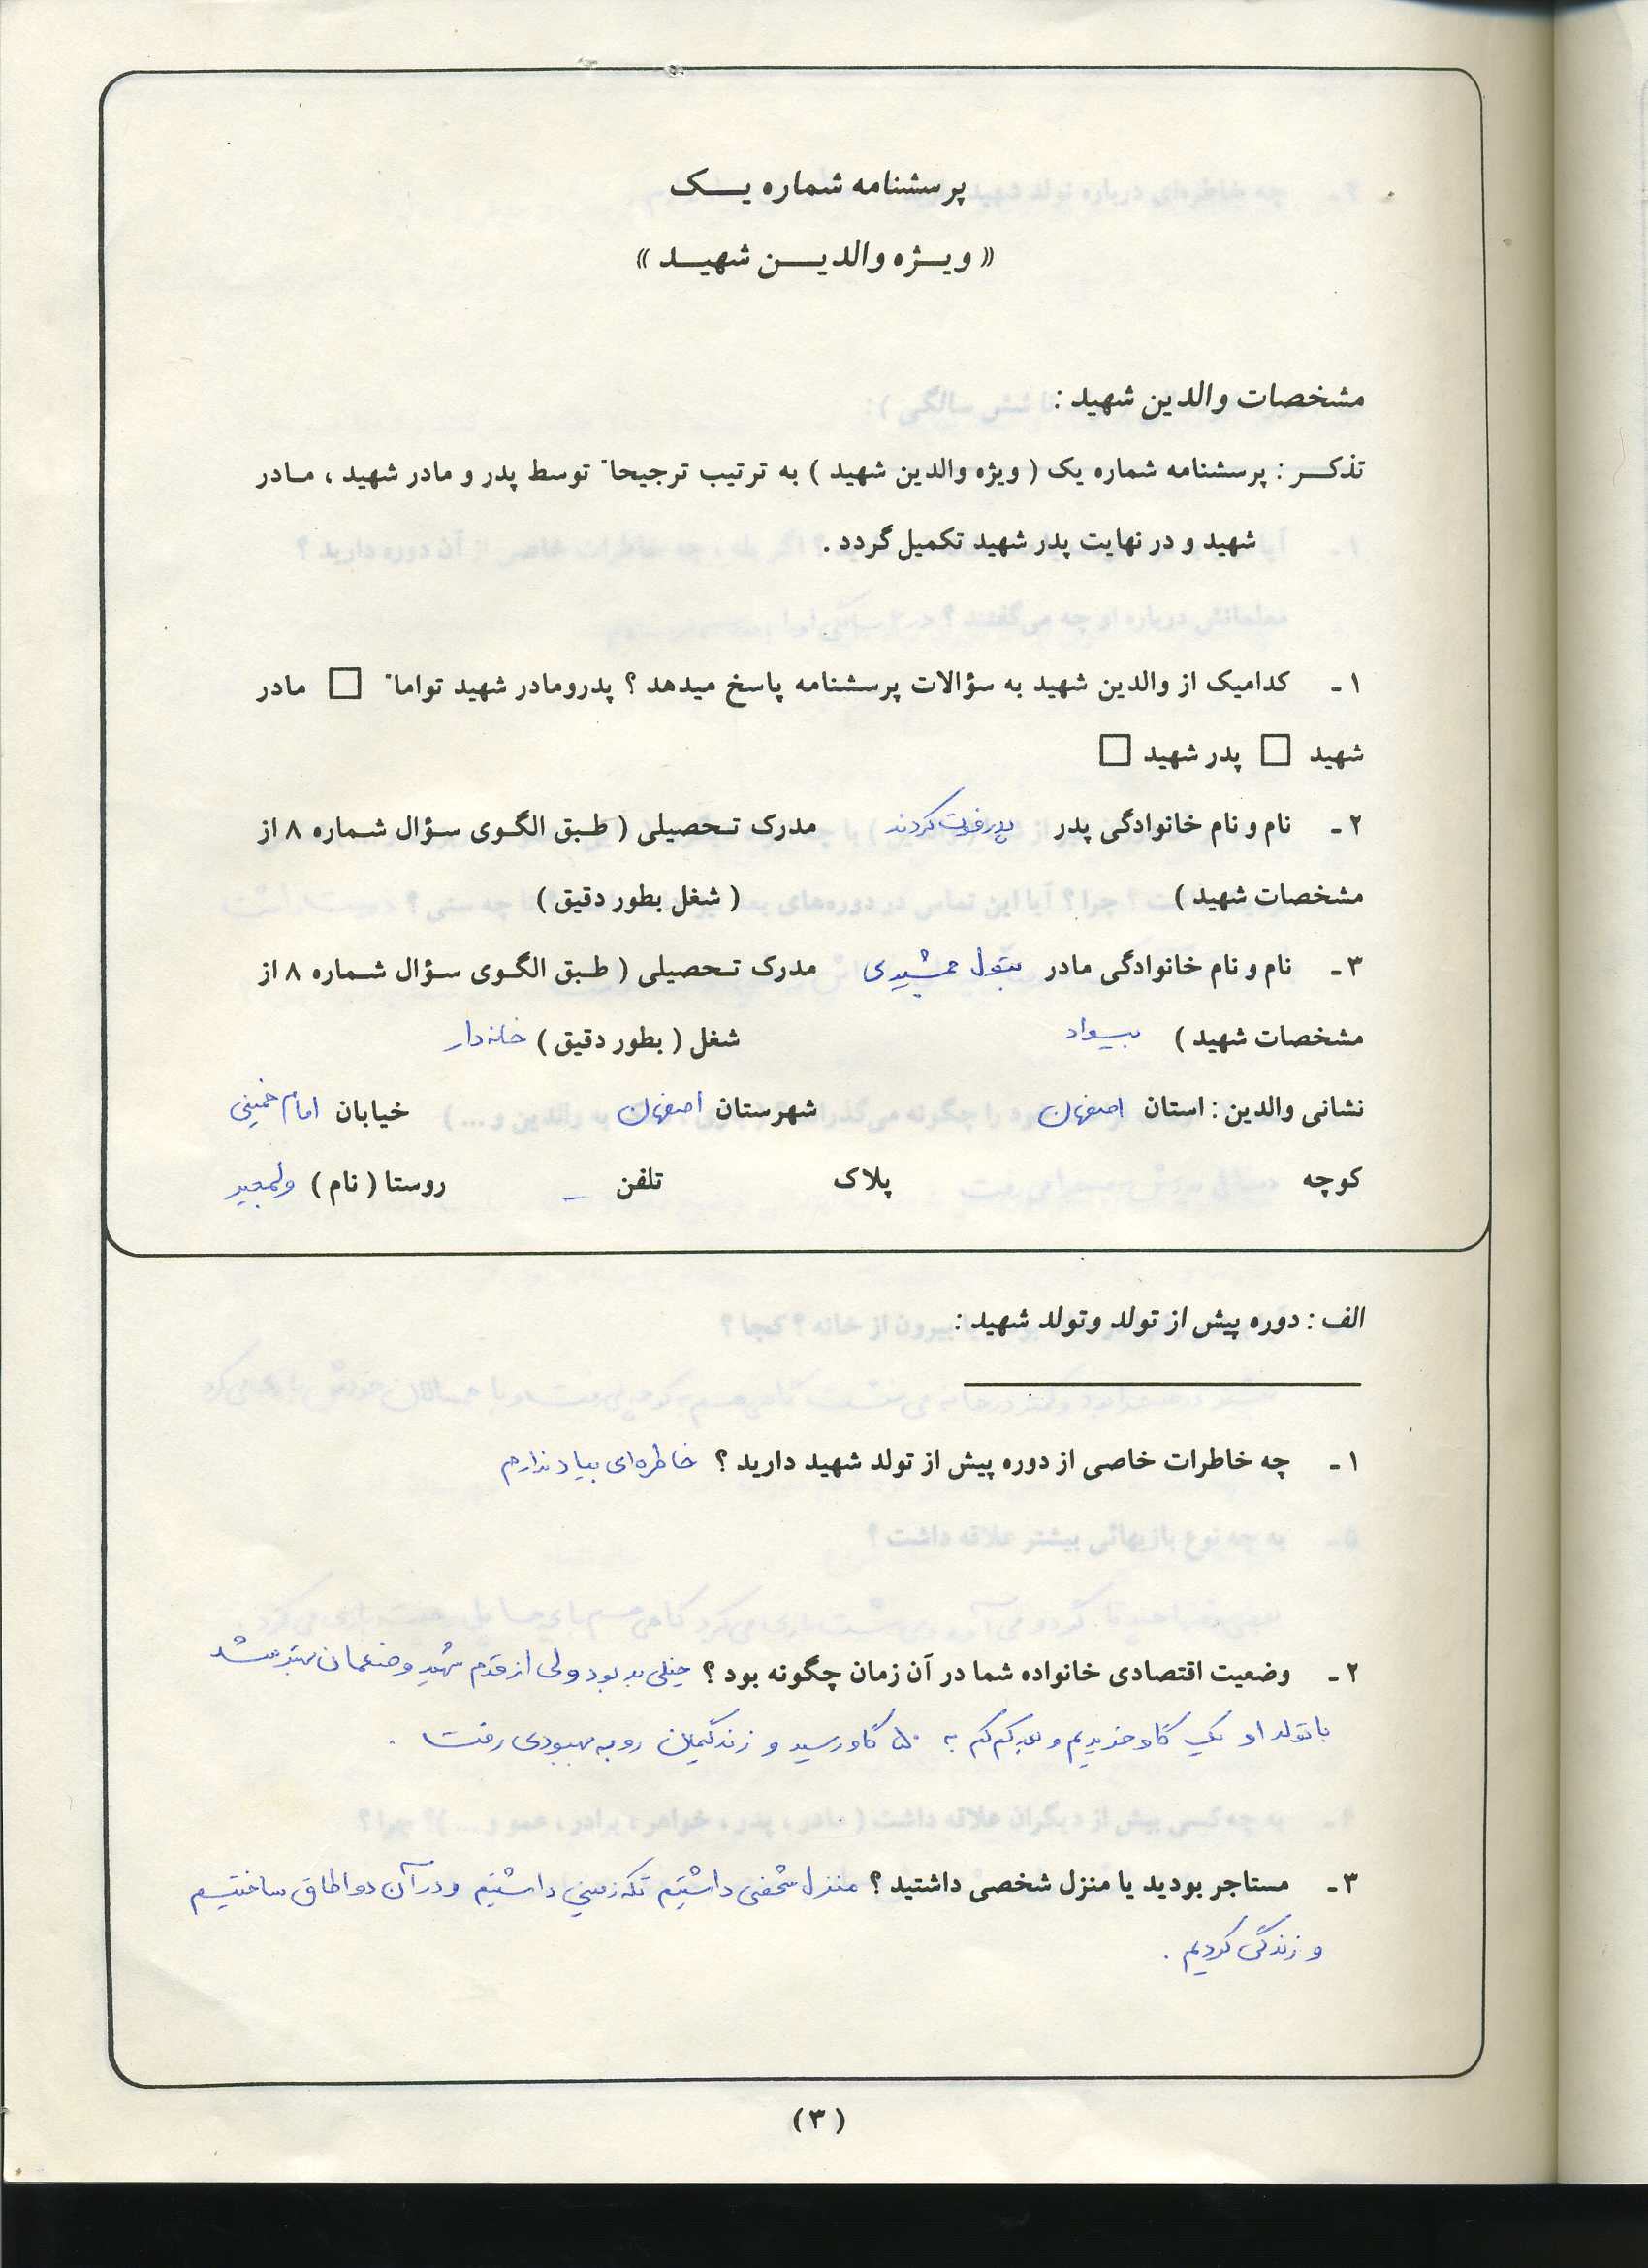 پرسشنامه شماره یک
« ویژه والدین شهید »
مشخصات والدین شهید :
تذکر : پرسشنامه شماره یک ( ویژه والدین شهید ) به ترتیب ترجیحاً توسط پدر و مادر شهید ، مادر
شهید و در نهایت پدر شهید تکمیل گردد .
۱ - کدامیک از والدین شهید به سؤالات پرسشنامه پاسخ میدهد ؟ پدرومادر شهید تواماً □ مادر
شهید □ پدر شهید □
۲ - نام و نام خانوادگی پدر پدر فوت کردند مدرک تحصیلی ( طبق الگوی سؤال شماره ۸ از
مشخصات شهید ) ( شغل بطور دقیق )
۳ - نام و نام خانوادگی مادر بتول جمشیدی مدرک تحصیلی ( طبق الگوی سؤال شماره ۸ از
مشخصات شهید ) بیسواد شغل ( بطور دقیق ) خانه دار
نشانی والدین : استان اصفهان شهرستان اصفهان خیابان امام خمینی
کوچه پلاک تلفن - روستا ( نام )
الف : دوره پیش از تولد وتولد شهید :
۱ - چه خاطرات خاصی از دوره پیش از تولد شهید دارید ؟ خاطره‌ای بیاد ندارم
۲ - وضعیت اقتصادی خانواده شما در آن زمان چگونه بود ؟ خیلی بد بود ولی از قدم شهید وضعمان بهتر شد
با تولد او یک گاو خریدیم و بعد کم کم به ۵۰ گاو رسید و زندگیمان رو به بهبودی رفت .
۳ - مستاجر بودید یا منزل شخصی داشتید ؟ منزل شخصی داشتیم تکه زمینی داشتیم و در آن دو اطاق ساختیم
و زندگی کردیم .
( ۳ )